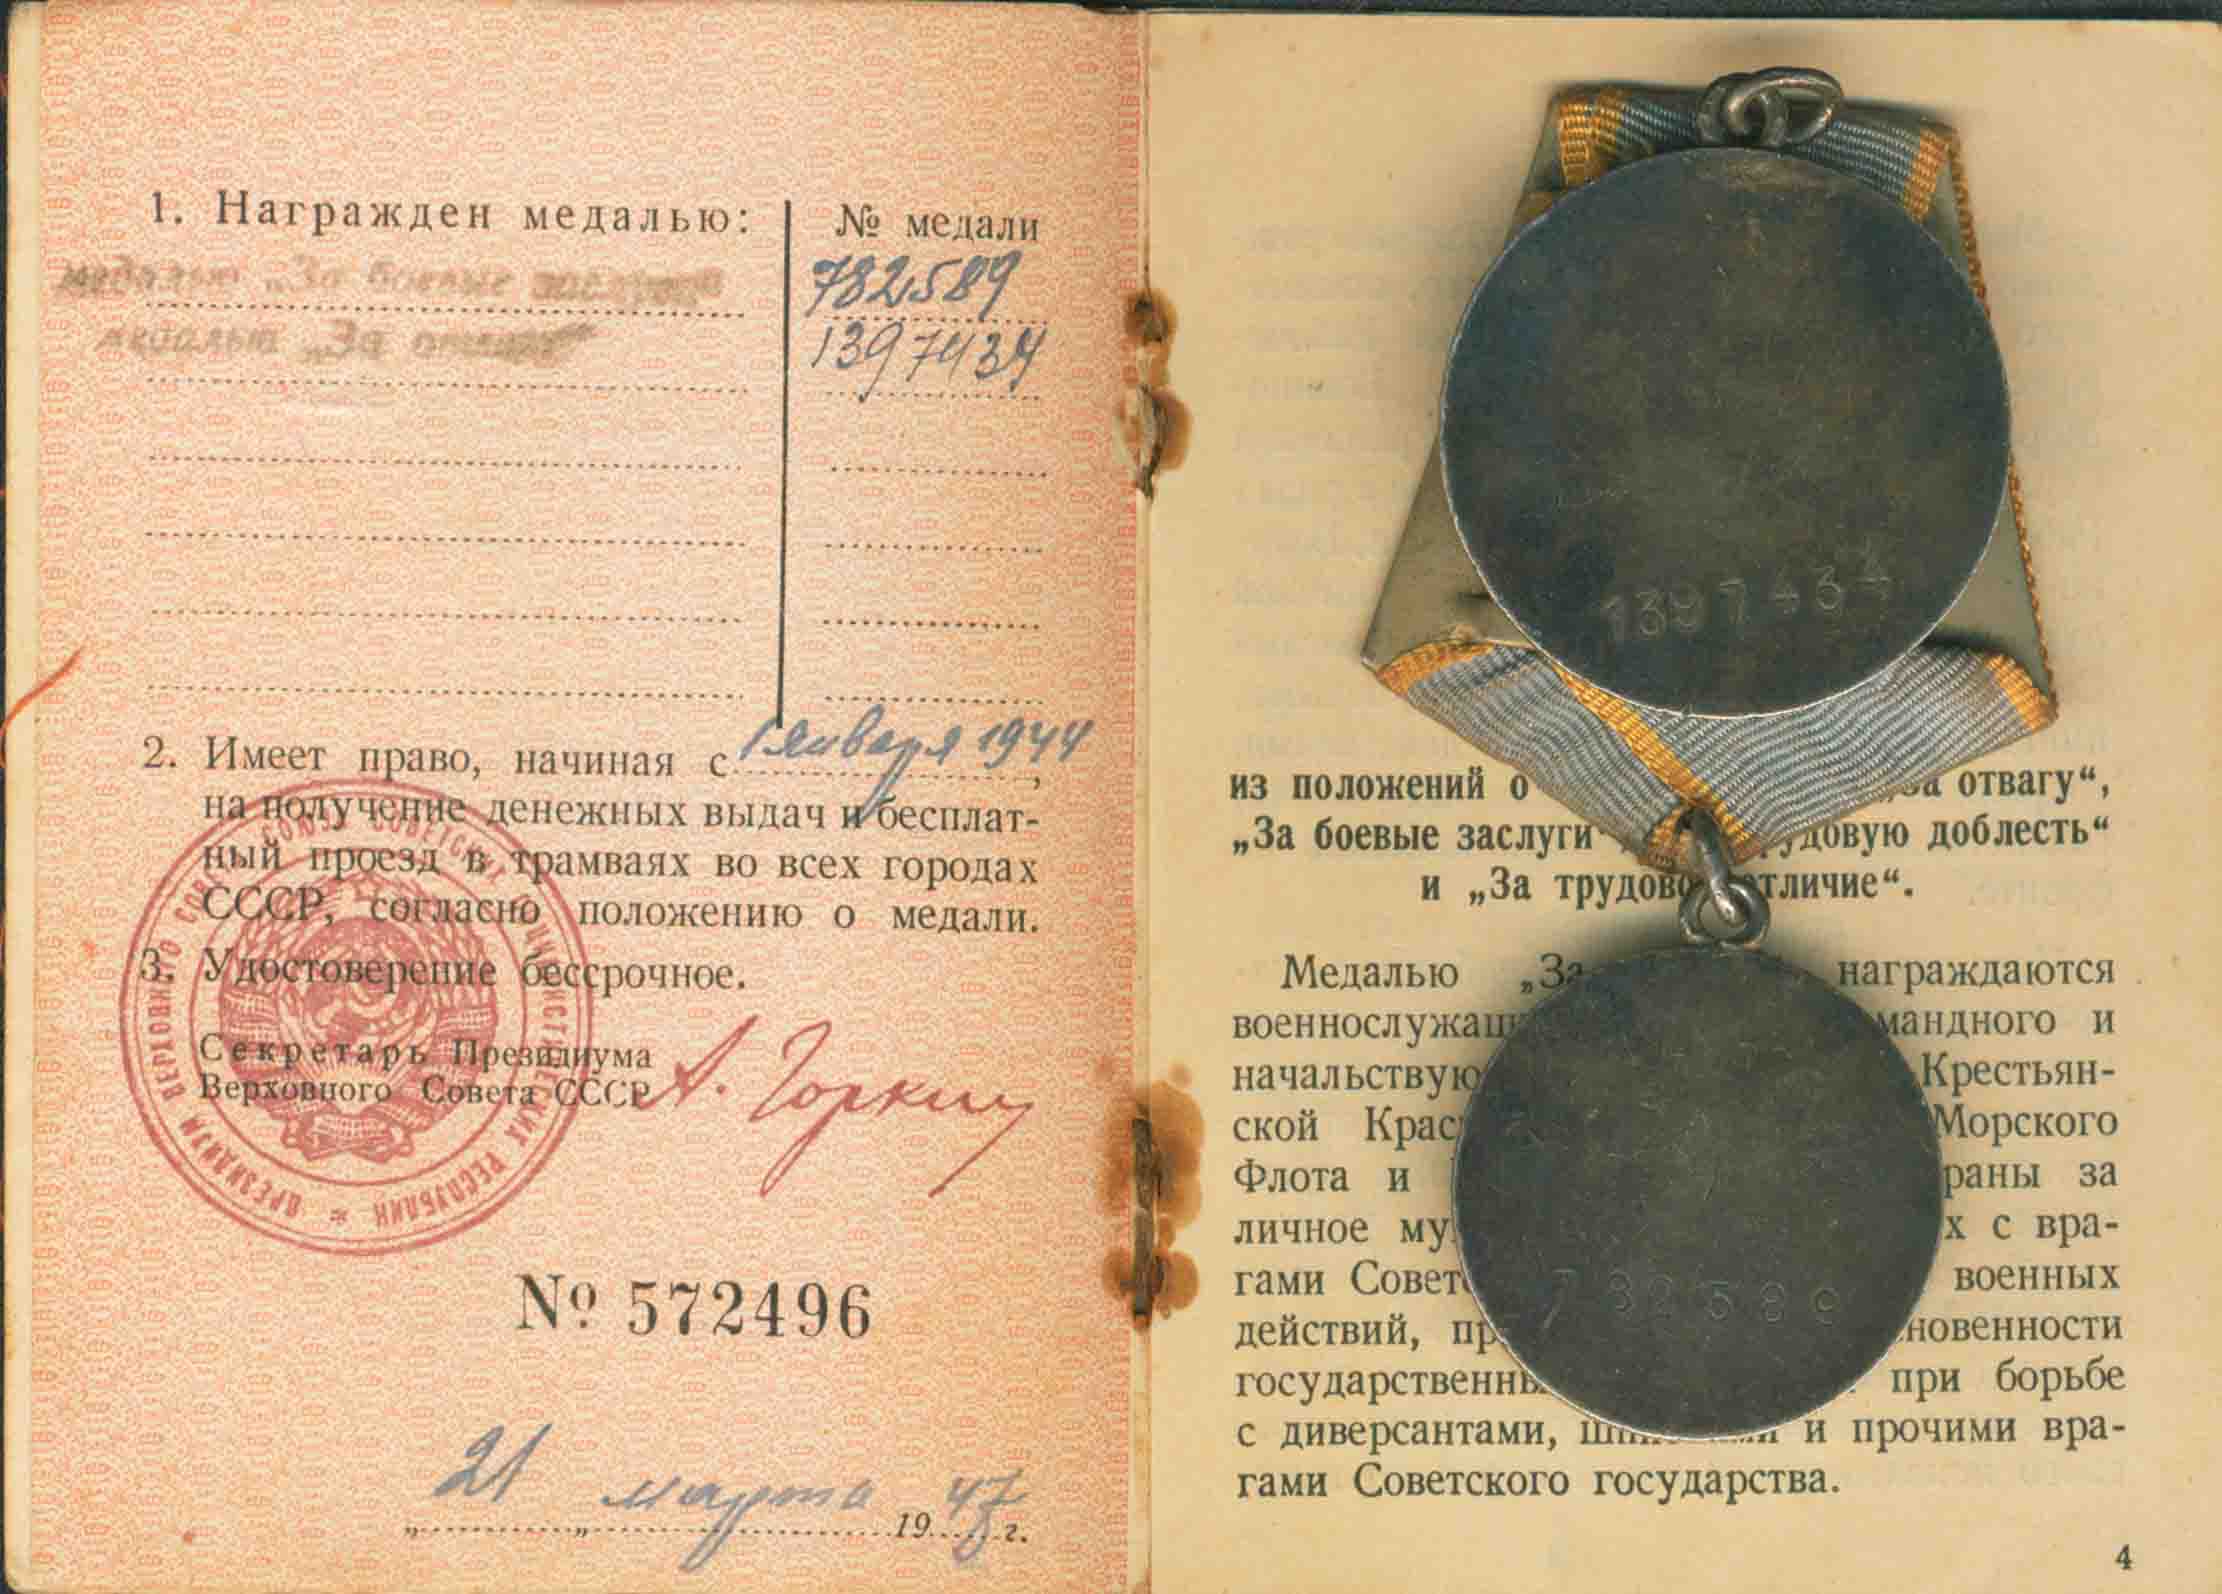 1. Награжден медалью:
№ медали
медалью „За боевые заслуги“
782589
медалью „За отвагу“
1397434
2. Имеет право, начиная с 1 января 1944,
на получение денежных выдач и бесплат-
ный проезд в трамваях во всех городах
СССР, согласно положению о медали.
3. Удостоверение бессрочное.
Секретарь Президиума
Верховного Совета СССР
А. Горкин
ПРЕЗИДИУМ ВЕРХОВНОГО СОВЕТА СОЮЗА СОВЕТСКИХ СОЦИАЛИСТИЧЕСКИХ РЕСПУБЛИК *
№ 572496
„21“ марта 1947 г.
1397434
из положений о „За отвагу“,
„За боевые заслуги трудовую доблесть“
и „За трудовое отличие“.
Медалью „За награждаются
военнослужащ командного и
начальствую Крестьян-
ской Крас Морского
Флота и раны за
личное му х с вра-
гами Совет военных
действий, пр новенности
государственны при борьбе
с диверсантами, шпионами и прочими вра-
гами Советского государства.
782589
4